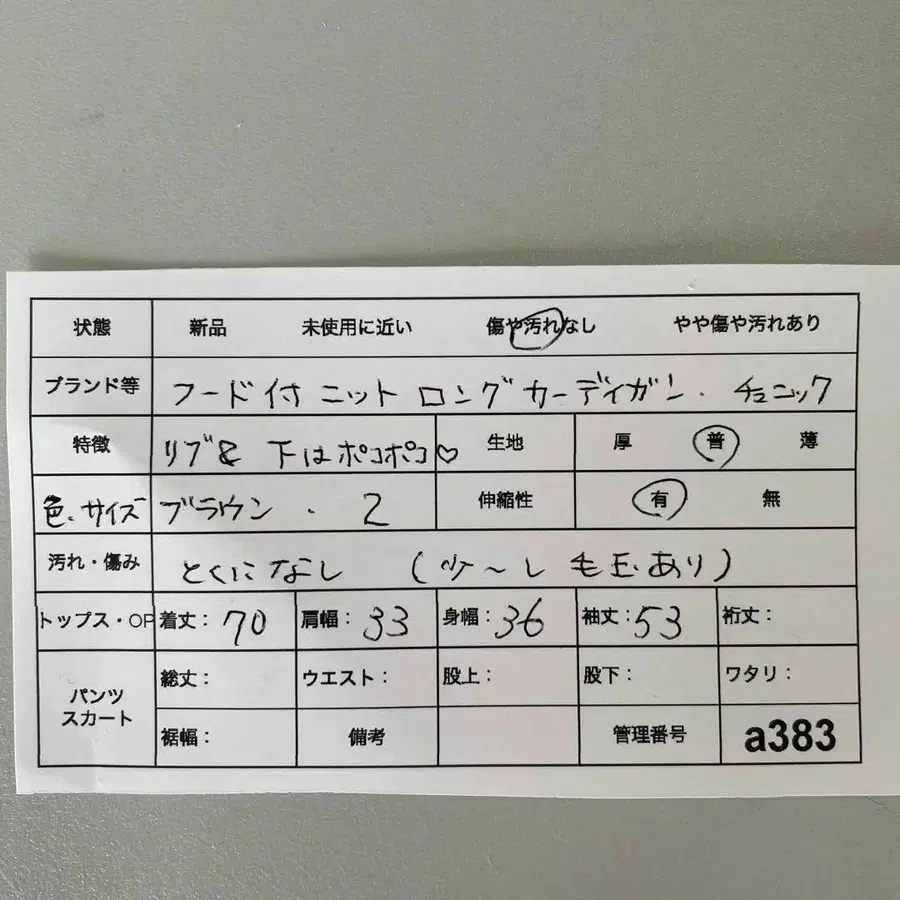 状態 新品 未使用に近い 傷や汚れなし やや傷や汚れあり
ブランド等 フード付 ニット ロングカーディガン・チュニック
特徴 リブ& 下はポコポコ♡ 生地 厚 普 薄
色・サイズ ブラウン ・ 2 伸縮性 有 無
汚れ・傷み とくになし (少〜し 毛玉あり)
トップス・OP 着丈: 70 肩幅: 33 身幅: 36 袖丈: 53 裄丈:
パンツ スカート 総丈: ウエスト: 股上: 股下: ワタリ:
裾幅: 備考 管理番号 a383